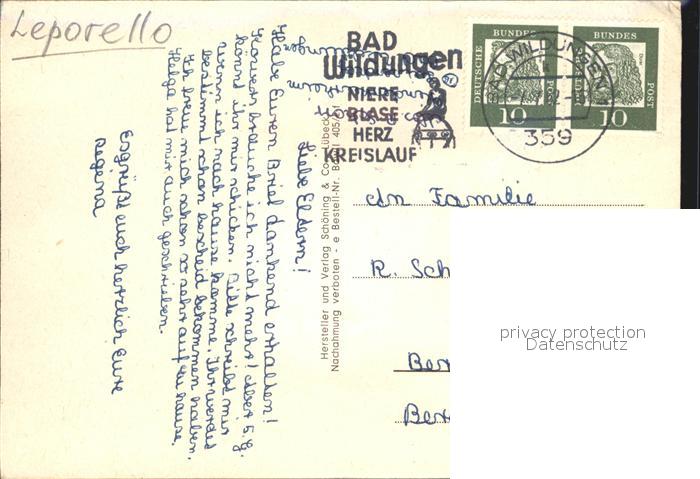 Leporello
BAD
Wildungen
NIERE
BLASE
HERZ
KREISLAUF
BAD WILDUNGEN
359
DEUTSCHE
BUNDES
POST
10
DEUTSCHE
BUNDES
POST
10
Liebe Eltern!
Habe Euren Brief dankend erhalten!
brauche ich nicht mehr! Aber 5.g.
könnt ihr mir schicken. Bitte schreibt mir
wenn ich nach hause komme. Ihr werdet
bestimmt schon bescheid bekommen haben.
Ich freue mich schon so sehr auf zu hause.
Helga hat mir auch geschrieben.
Es grüßt euch herzlich Eure
Regina
Hersteller und Verlag Schöning & Co., Lübeck
Nachahmung verboten - e Bestell-Nr.
An Familie
R. Sch
Ber
Ber
privacy protection
Datenschutz